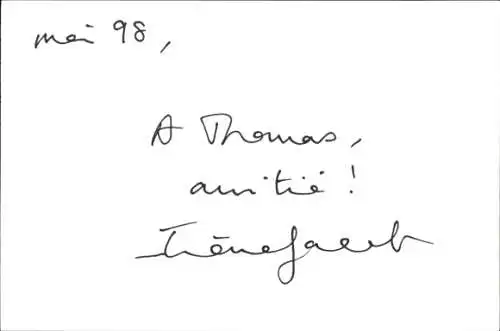 mai 98,
A Thomas,
amitié !
Irène Jacob